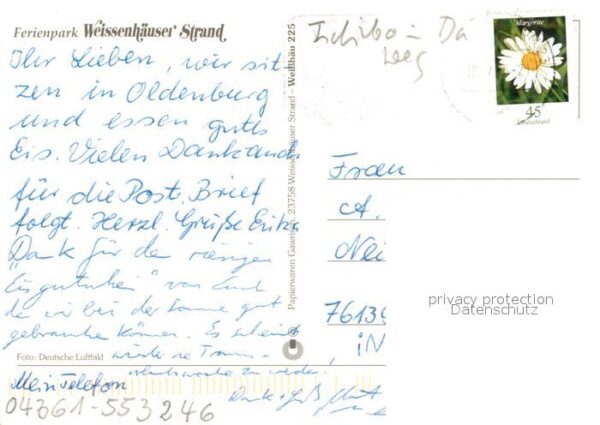 Ferienpark Weissenhäuser Strand
Ihr Lieben, wir sit-
zen in Oldenburg
und essen gutes
Eis. Vielen Dank auch
für die Post. Brief
folgt. Herzl. Grüße Erika
"Dank für den riesigen
Eisgutschein" von Euch
de wir bei der Sonne gut
gebrauchen können. Es scheint
wieder ne Traum-
urlaubswoche zu werden.
Dank + Gruß
Foto: Deutsche Luftbild
Mein Telefon
04361-553246
Papierwaren Gawron, 23758 Weissenhäuser Strand - Weißhäu 225
Tchibo = Da
Weg
Margerite
45
Deutschland
Frau
A.
Nei
76139
privacy protection
Datenschutz